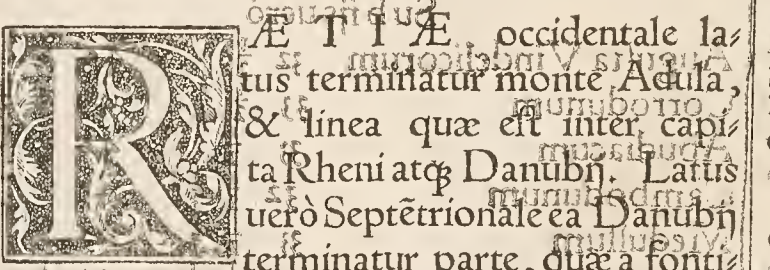 RÆTIÆ occidentale la⸗
tus terminatur monte Adula,
& linea quæ eſt inter capi⸗
ta Rheni atqꝫ Danubij. Latus
uerò Septẽtrionale ea Danubij
terminatur parte, quæ a fonti⸗